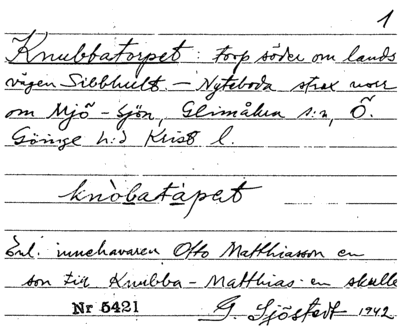 1
Knubbatorpet: torp söder om lands
vägen Sibbhult. - Nyteboda strax norr
om Mjö-sjön, Glimåkra s:n, Ö.
Göinge h:d Krist l.
knòbatàpet
Enl. innehavaren Otto Matthiasson en
son till Knubba-Matthias en skulle
Nr 5421
G. Sjöstedt 1942